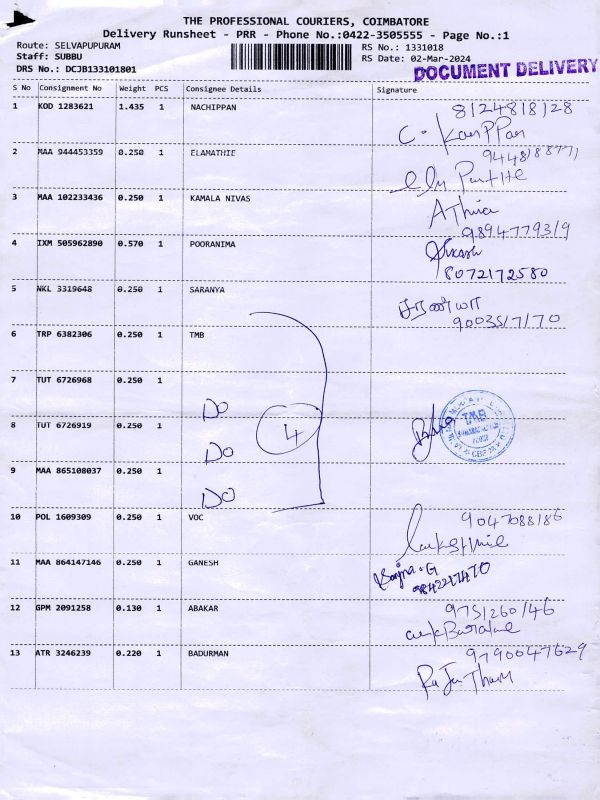 THE PROFESSIONAL COURIERS, COIMBATORE
Delivery Runsheet - PRR - Phone No.:0422-3505555 - Page No.:1
Route: SELVAPUPURAM RS No.: 1331018
Staff: SUBBU RS Date: 02-Mar-2024
DRS No.: DCJB133101801 DOCUMENT DELIVERY
S No Consignment No Weight PCS Consignee Details Signature
1 KOD 1283621 1.435 1 NACHIPPAN 8124818128
2 MAA 944453359 0.250 1 ELAMATHIE
3 MAA 102233436 0.250 1 KAMALA NIVAS Athira
9894779319
4 IXM 505962890 0.570 1 POORANIMA
8072172580
5 NKL 3319648 0.250 1 SARANYA சரண்யா
9003517170
6 TRP 6382306 0.250 1 TMB
7 TUT 6726968 0.250 1
DO
8 TUT 6726919 0.250 1 4 TMB
DO
9 MAA 865108037 0.250 1
DO
10 POL 1609309 0.250 1 VOC 9047088186
11 MAA 864147146 0.250 1 GANESH
12 GPM 2091258 0.130 1 ABAKAR 9751260146
13 ATR 3246239 0.220 1 BADURMAN 9790047629